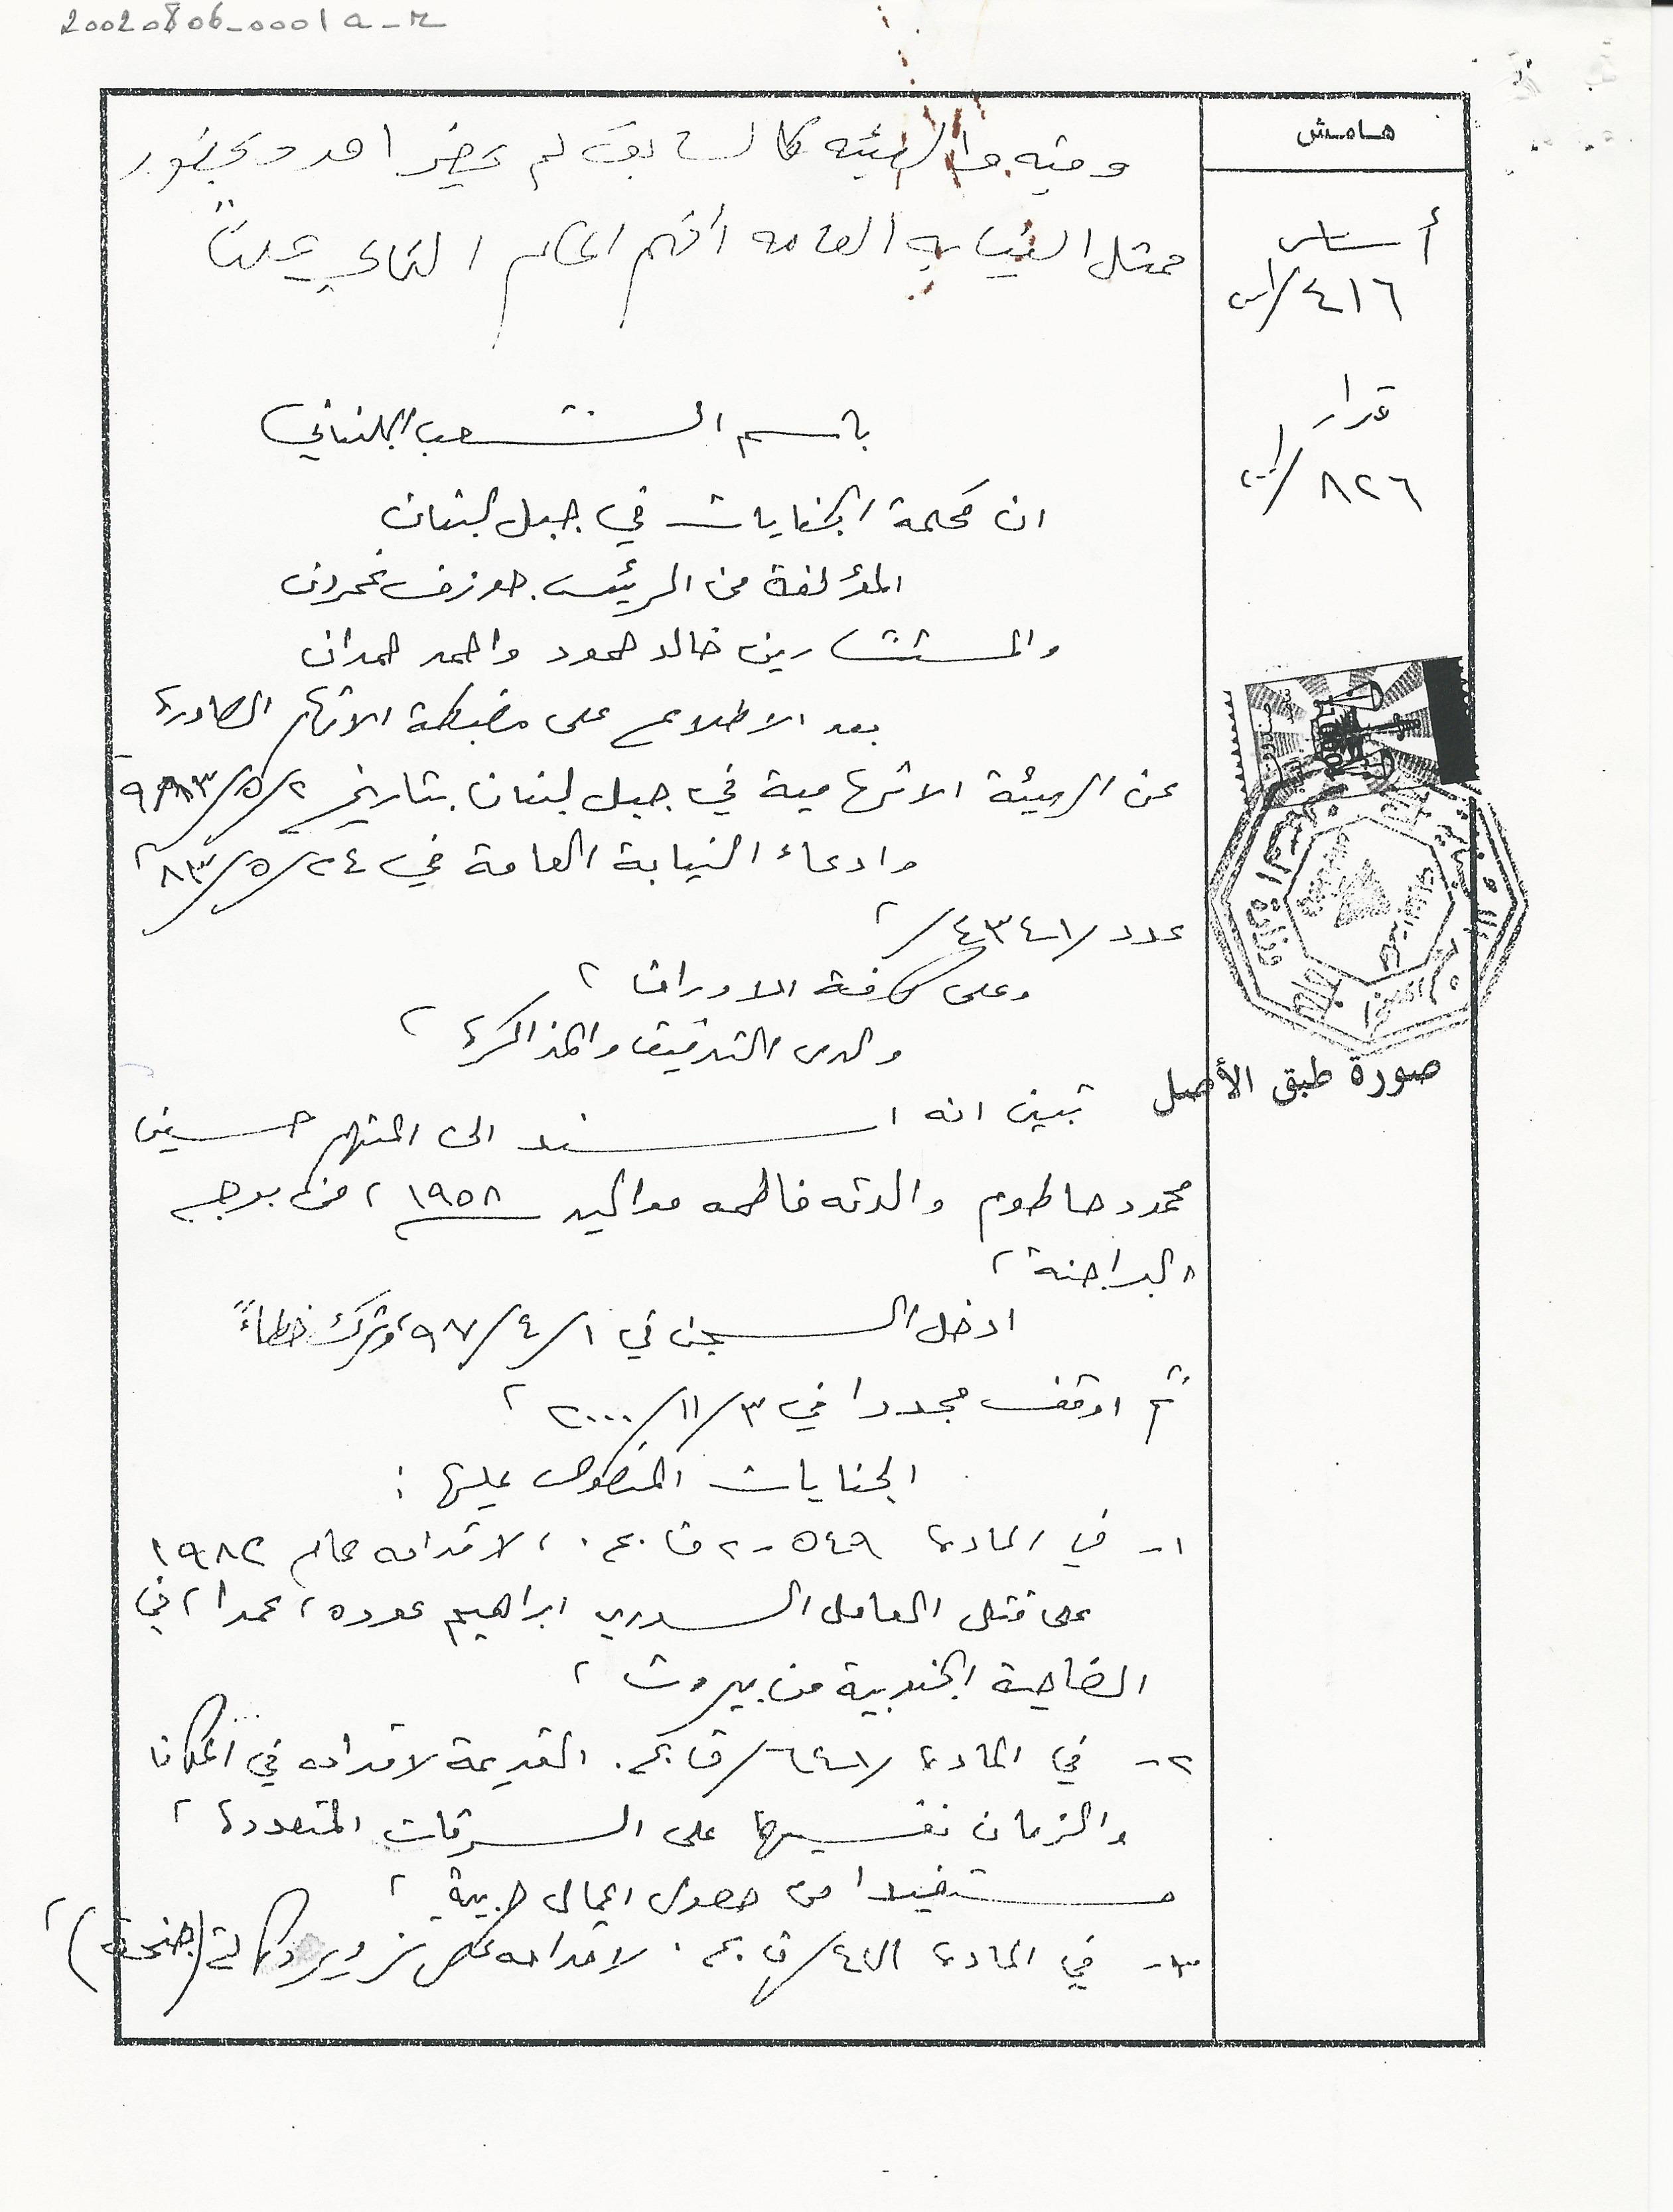 20020806-0001a-r
هامش
وفيه والهيئه كالسابق لم يحضر احد وبحضور
ممثل النيابه العامه أفهم الحكم التالي علناً
أساس
٤١٦/
قرار
٨٢٦/
باسم الشعب اللبناني
ان محكمة الجنايات في جبل لبنان
المؤلفة من الرئيس جوزف غمرون
والمستشارين خالد حمود واحمد حمدان
بعد الاطلاع على مضبطة الاتهام الصادرة
عن الهيئة الاتهامية في جبل لبنان بتاريخ ٢/٥/٩٨٣
وادعاء النيابة العامة في ٢٤/٥/٨٣،
عدد /٤٣٤١/،
وعلى كافة الاوراق،
ولدى التدقيق والمذاكرة،
صورة طبق الأصل
تبين انه اسند الى المتهم حسين
محمود حاطوم والدته فاطمه مواليد ١٩٥٨، من برج
البراجنة،
ادخل السجن في ١/٤/٩٧، وترك خطاءً
ثم اوقف مجددا في ٣/١١/٢٠٠٠،
الجنايات المنصوص عليها:
١- في المادة ٥٤٩-٢ ق.ع.، لاقدامه عام ١٩٨٢
على قتل العامل السوري ابراهيم عوده، عمدا، في
الضاحية الجنوبية من بيروت،
٢- في المادة /٦٤١/ ق.ع. القديمة لاقدامه في المكان
والزمان نفسيهما على السرقات المتعددة،
مستفيدا من حصول اعمال حربية،
٣- في المادة ٤٧١/ق.ع. لاقدامه على تزوير وكالة (جنحة)،